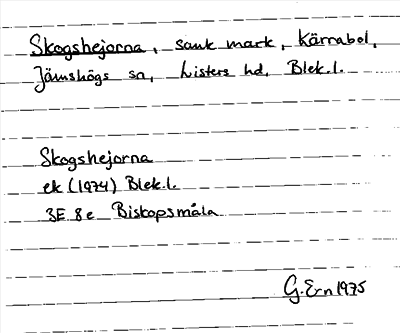 Skogshejorna, sank mark, Kärrabol,
Jämshögs sn, Listers hd, Blek.l.
Skogshejorna
ek (1974) Blek.l.
3E 8e Biskopsmåla
G. Ern 1975